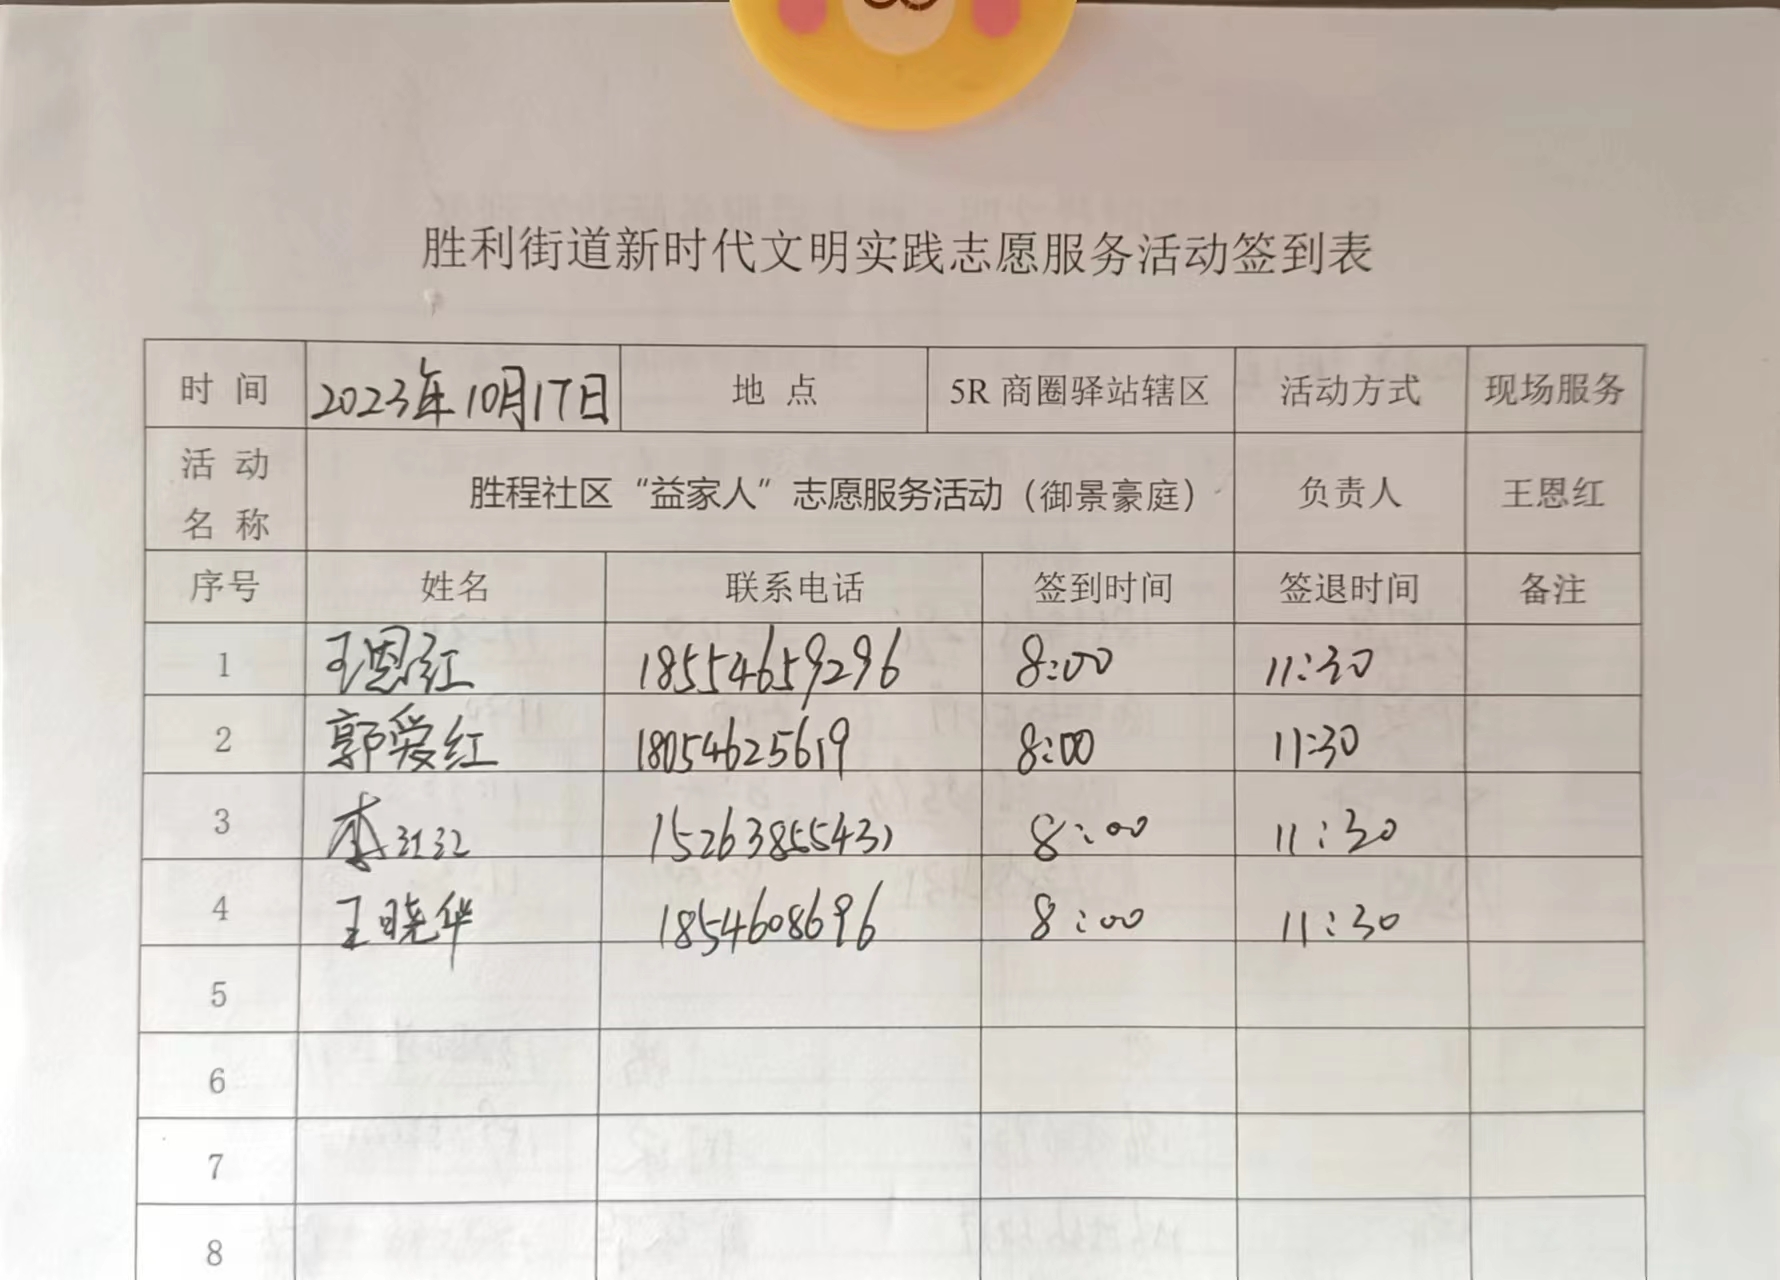 胜利街道新时代文明实践志愿服务活动签到表
时 间 2023年10月17日 地 点 5R 商圈驿站辖区 活动方式 现场服务
活 动
名 称 胜程社区“益家人”志愿服务活动（御景豪庭） 负责人 王恩红
序号 姓名 联系电话 签到时间 签退时间 备注
1 王恩红 18554659296 8:00 11:30
2 郭爱红 18054625619 8:00 11:30
3 李红红 15263855431 8:00 11:30
4 王晓华 1854608696 8:00 11:30
5
6
7
8